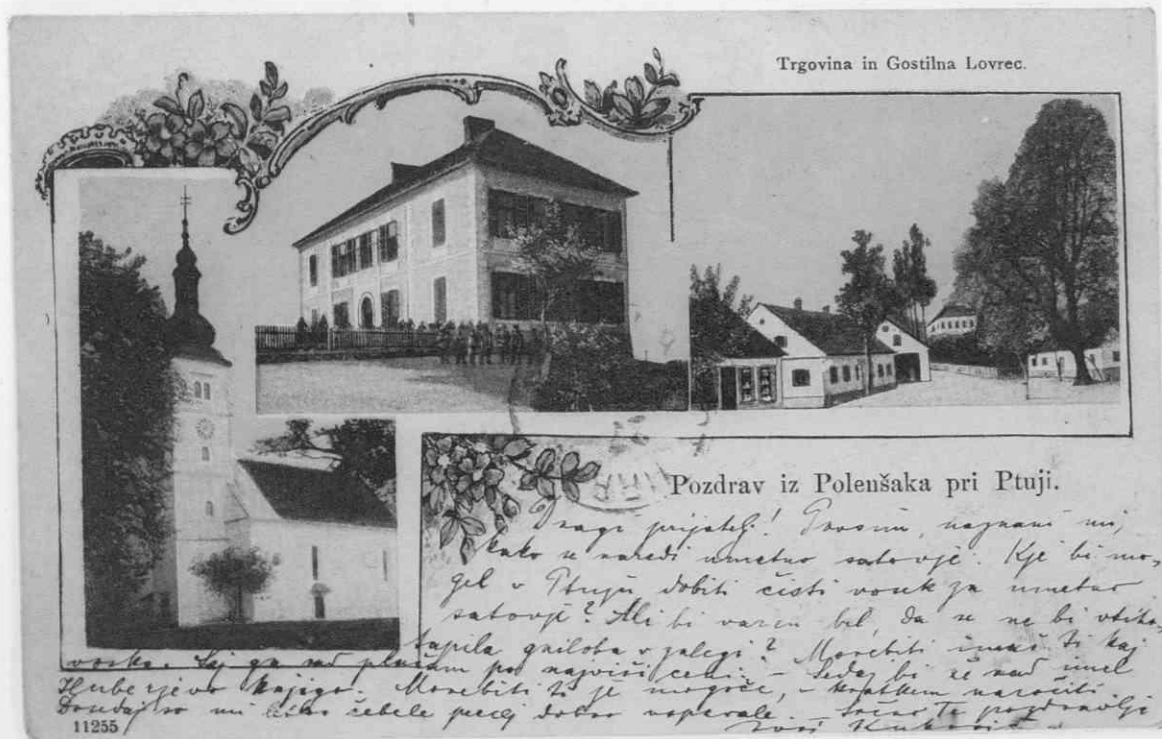 Trgovina in Gostilna Lovrec.
Pozdrav iz Polenšaka pri Ptuji.
Dragi prijatelj! Prosim, naznani mi,
kako se naredi umetno satovje. Kje bi mo-
gel v Ptuju dobiti čisti vosek za umetno
satovje? Ali bi varen bil, da se ne bi
gniloba v zalegi? Morebiti imaš ti kaj
voska. Saj ga rad plačam po najvišji ceni. – Sedaj bi še rad imel
knjigo. Morebiti ti je mogoče, – naročiti.
Dosedaj so mi čebele precej dobro. – Srčno te pozdravlja
11255